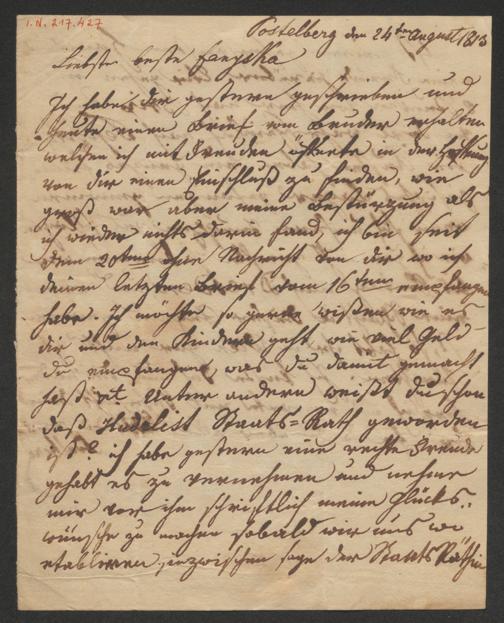 I.N. 217.427
Postelberg den 24ten August 1813
Liebste beste Fanyska
Ich habe dir gestern geschrieben und
heute einen Brief vom Bruder erhalten
welchen ich mit Freuden öffnete in der Hoffnung
von dir einen Einschluß zu finden, wie
groß war aber meine Bestürzung als
ich wieder nichts darin fand, ich bin seit
dem 20ten ohne Nachricht von dir wo ich
deinen letzten Brief vom 16ten empfangen
habe. Ich möchte so gerne wißen wie es
dir und den Kindern geht wie viel Geld
du empfangen, was du damit gemacht
hast etc. Unter andern weißt du schon
daß Hudelist Staats=Rath geworden
ist? ich habe gestern eine rechte Freude
gehabt es zu vernehmen und nehme
mir vor ihm schriftlich meine Glücks=
wünsche zu machen sobald wir uns wo
etabliren, inzwischen sage der Staats Räthin